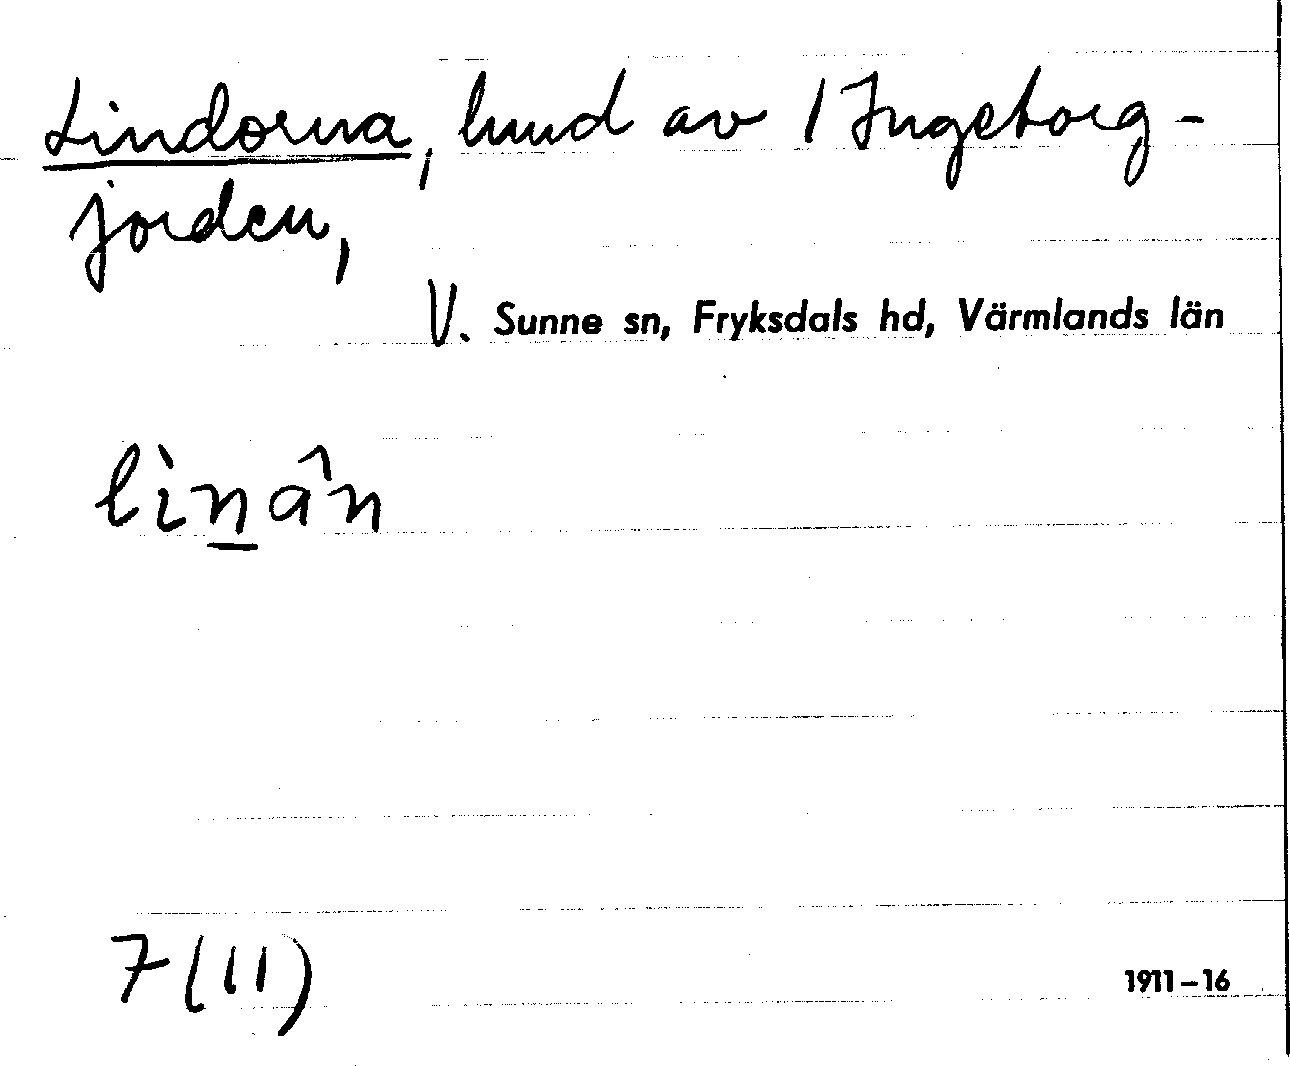 Lindorna, lund av 1 Ingeborg-
jorden,
V. Sunne sn, Fryksdals hd, Värmlands län
lìn̲ân
7 (11)
1911–16